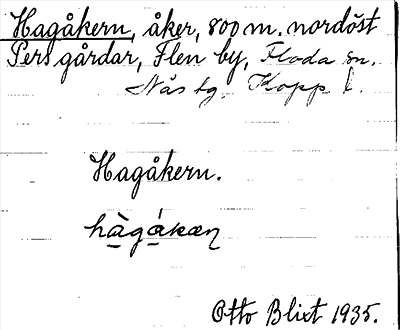 Hagåkern, åker, 800 m. nordöst
Pers gårdar, Flen by, Floda sn.
Nås tg. Kopp. l.
Hagåkern.
hàgákæɳ
Otto Blixt 1935.